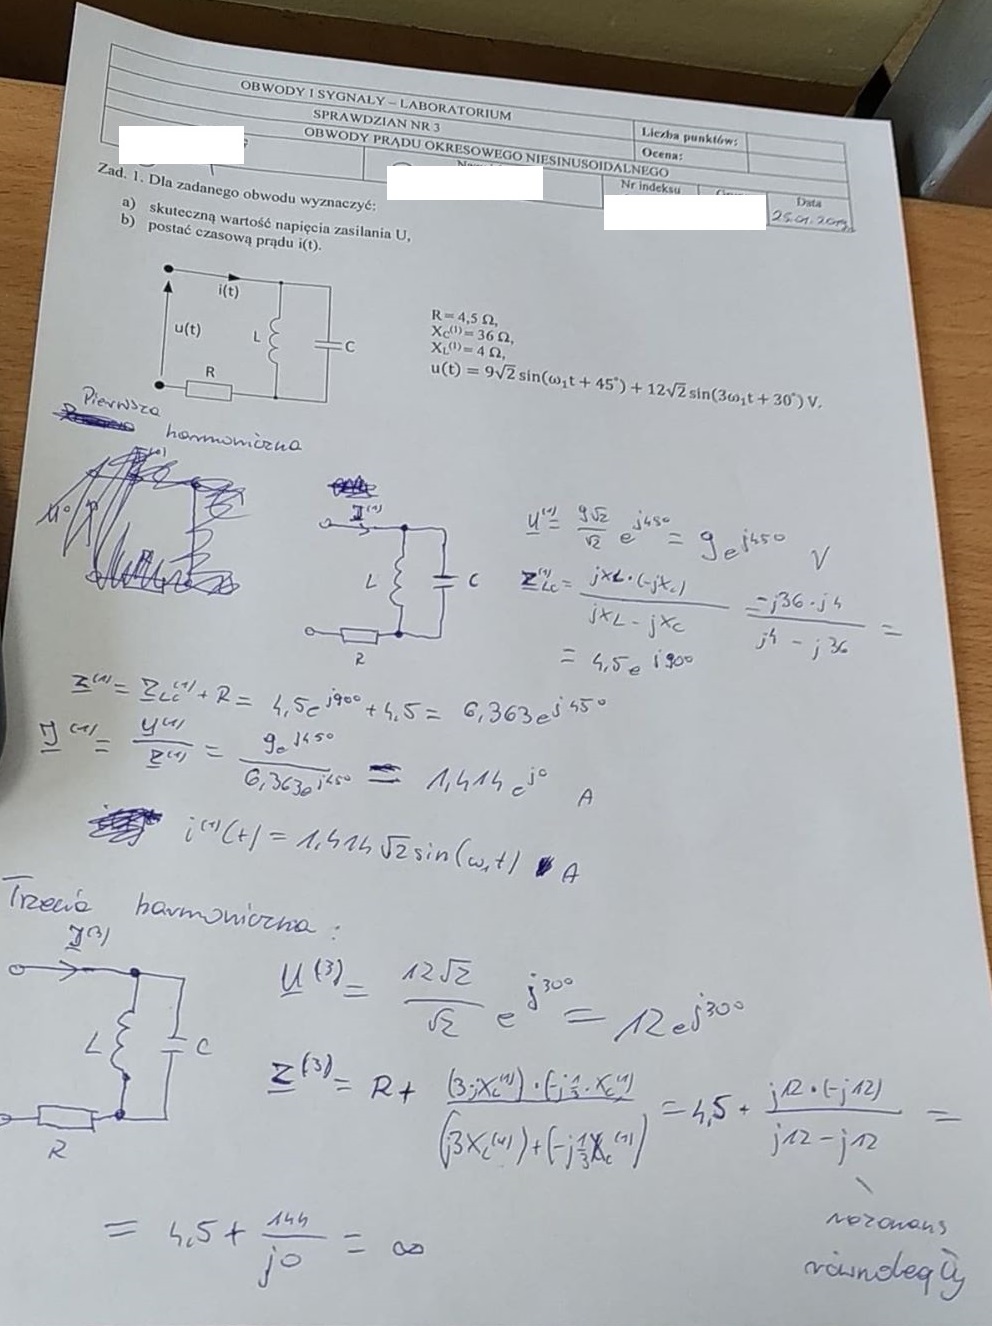 OBWODY I SYGNAŁY – LABORATORIUM
SPRAWDZIAN NR 3
OBWODY PRĄDU OKRESOWEGO NIESINUSOIDALNEGO
Liczba punktów:
Ocena:
Nr indeksu
Data
25.01.2019
Zad. 1. Dla zadanego obwodu wyznaczyć:
a) skuteczną wartość napięcia zasilania U,
b) postać czasową prądu i(t).
i(t)
u(t)
L
C
R
R = 4,5 Ω,
X_C^(1) = 36 Ω,
X_L^(1) = 4 Ω,
u(t) = 9√2 sin(ω₁t + 45°) + 12√2 sin(3ω₁t + 30°) V.
Pierwsza
harmoniczna
I^(1)
L
C
R
U^(1) = 9√2/√2 e^j45° = 9e^j45° V
Z_LC^(1) = jX_L·(-jX_C) / jX_L - jX_C = -j36·j4 / j4 - j36 =
= 4,5e^j90°
Z^(1) = Z_LC^(1) + R = 4,5e^j90° + 4,5 = 6,363e^j45°
I^(1) = U^(1)/Z^(1) = 9e^j45° / 6,363e^j45° = 1,414e^j0 A
i^(1)(t) = 1,414√2 sin(ω₁t) A
Trzecia harmoniczna:
I^(3)
L
C
R
U^(3) = 12√2/√2 e^j30° = 12e^j30°
Z^(3) = R + (3jX_L^(1))·(-j1/3·X_C^(1)) / (j3X_L^(1)) + (-j1/3X_C^(1)) = 4,5 + j12·(-j12) / j12 - j12 =
rezonans
równoległy
= 4,5 + 144/j0 = ∞